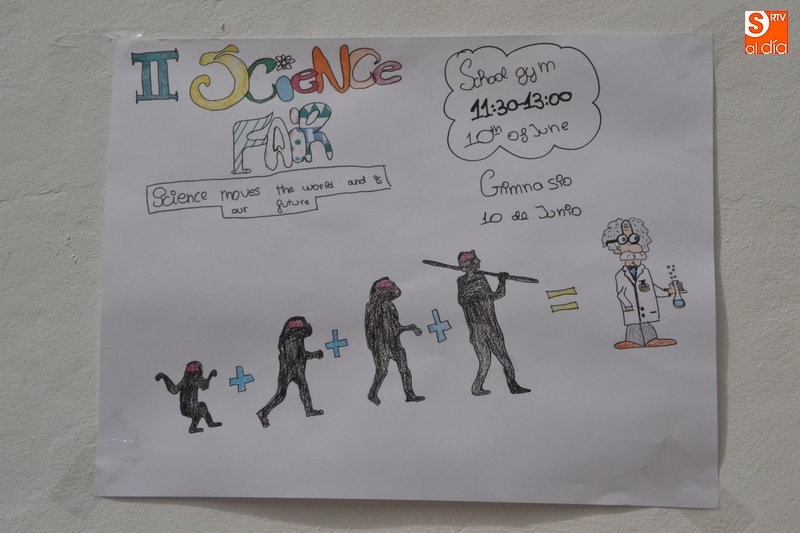 II SCieNCe
FAiR
Science moves the world and is
our future
School gym
11:30-13:00
10th of June
Gimnasio
10 de Junio
S RTV
al día